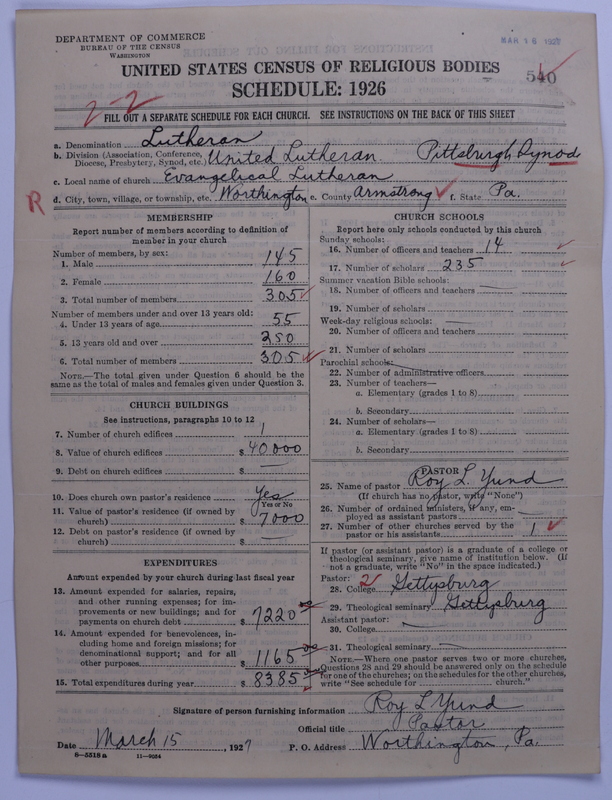 DEPARTMENT OF COMMERCE
BUREAU OF THE CENSUS
WASHINGTON
MAR 16 1927
UNITED STATES CENSUS OF RELIGIOUS BODIES
SCHEDULE: 1926
540
2-2
FILL OUT A SEPARATE SCHEDULE FOR EACH CHURCH. SEE INSTRUCTIONS ON THE BACK OF THIS SHEET
a. Denomination Lutheran
b. Division (Association, Conference, Diocese, Presbytery, Synod, etc.) United Lutheran Pittsburgh Synod
c. Local name of church Evangelical Lutheran
R
d. City, town, village, or township, etc. Worthington e. County Armstrong f. State Pa.
MEMBERSHIP
Report number of members according to definition of
member in your church
Number of members, by sex:
1. Male 145
2. Female 160
3. Total number of members 305
Number of members under and over 13 years old:
4. Under 13 years of age 55
5. 13 years old and over 250
6. Total number of members 305
NOTE.—The total given under Question 6 should be
same as the total of males and females given under Question 3.
CHURCH BUILDINGS
See instructions, paragraphs 10 to 12
7. Number of church edifices 1
8. Value of church edifices $ 40000
9. Debt on church edifices $ —
10. Does church own pastor's residence Yes
Yes or No
11. Value of pastor's residence (if owned by
church) $ 7000
12. Debt on pastor's residence (if owned by
church) $ —
EXPENDITURES
Amount expended by your church during last fiscal year
13. Amount expended for salaries, repairs,
and other running expenses; for im-
provements or new buildings; and for
payments on church debt $ 7220
14. Amount expended for benevolences, in-
cluding home and foreign missions; for
denominational support; and for all
other purposes $ 1165
15. Total expenditures during year $ 8385
CHURCH SCHOOLS
Report here only schools conducted by this church
Sunday schools:
16. Number of officers and teachers 14
17. Number of scholars 235
Summer vacation Bible schools:
18. Number of officers and teachers —
19. Number of scholars
Week-day religious schools: —
20. Number of officers and teachers
21. Number of scholars
Parochial schools: —
22. Number of administrative officers
23. Number of teachers—
a. Elementary (grades 1 to 8)
b. Secondary
24. Number of scholars—
a. Elementary (grades 1 to 8)
b. Secondary
PASTOR
25. Name of pastor Roy L. Yund
(If church has no pastor, write "None")
26. Number of ordained ministers, if any, em-
ployed as assistant pastors —
27. Number of other churches served by the
pastor or his assistants 1
If pastor (or assistant pastor) is a graduate of a college or
theological seminary, give name of institution below. (If
not a graduate, write "No" in the space indicated.)
Pastor:
28. College 2 Gettysburg
29. Theological seminary Gettysburg
Assistant pastor:
30. College —
31. Theological seminary —
NOTE.—Where one pastor serves two or more churches,
Questions 28 and 29 should be answered only on the schedule
for one of the churches; on the schedules for the other churches,
write "See schedule for church."
Signature of person furnishing information Roy L Yund
Official title Pastor
Date March 15, 1927 P. O. Address Worthington, Pa.
8—5518a 11—9034